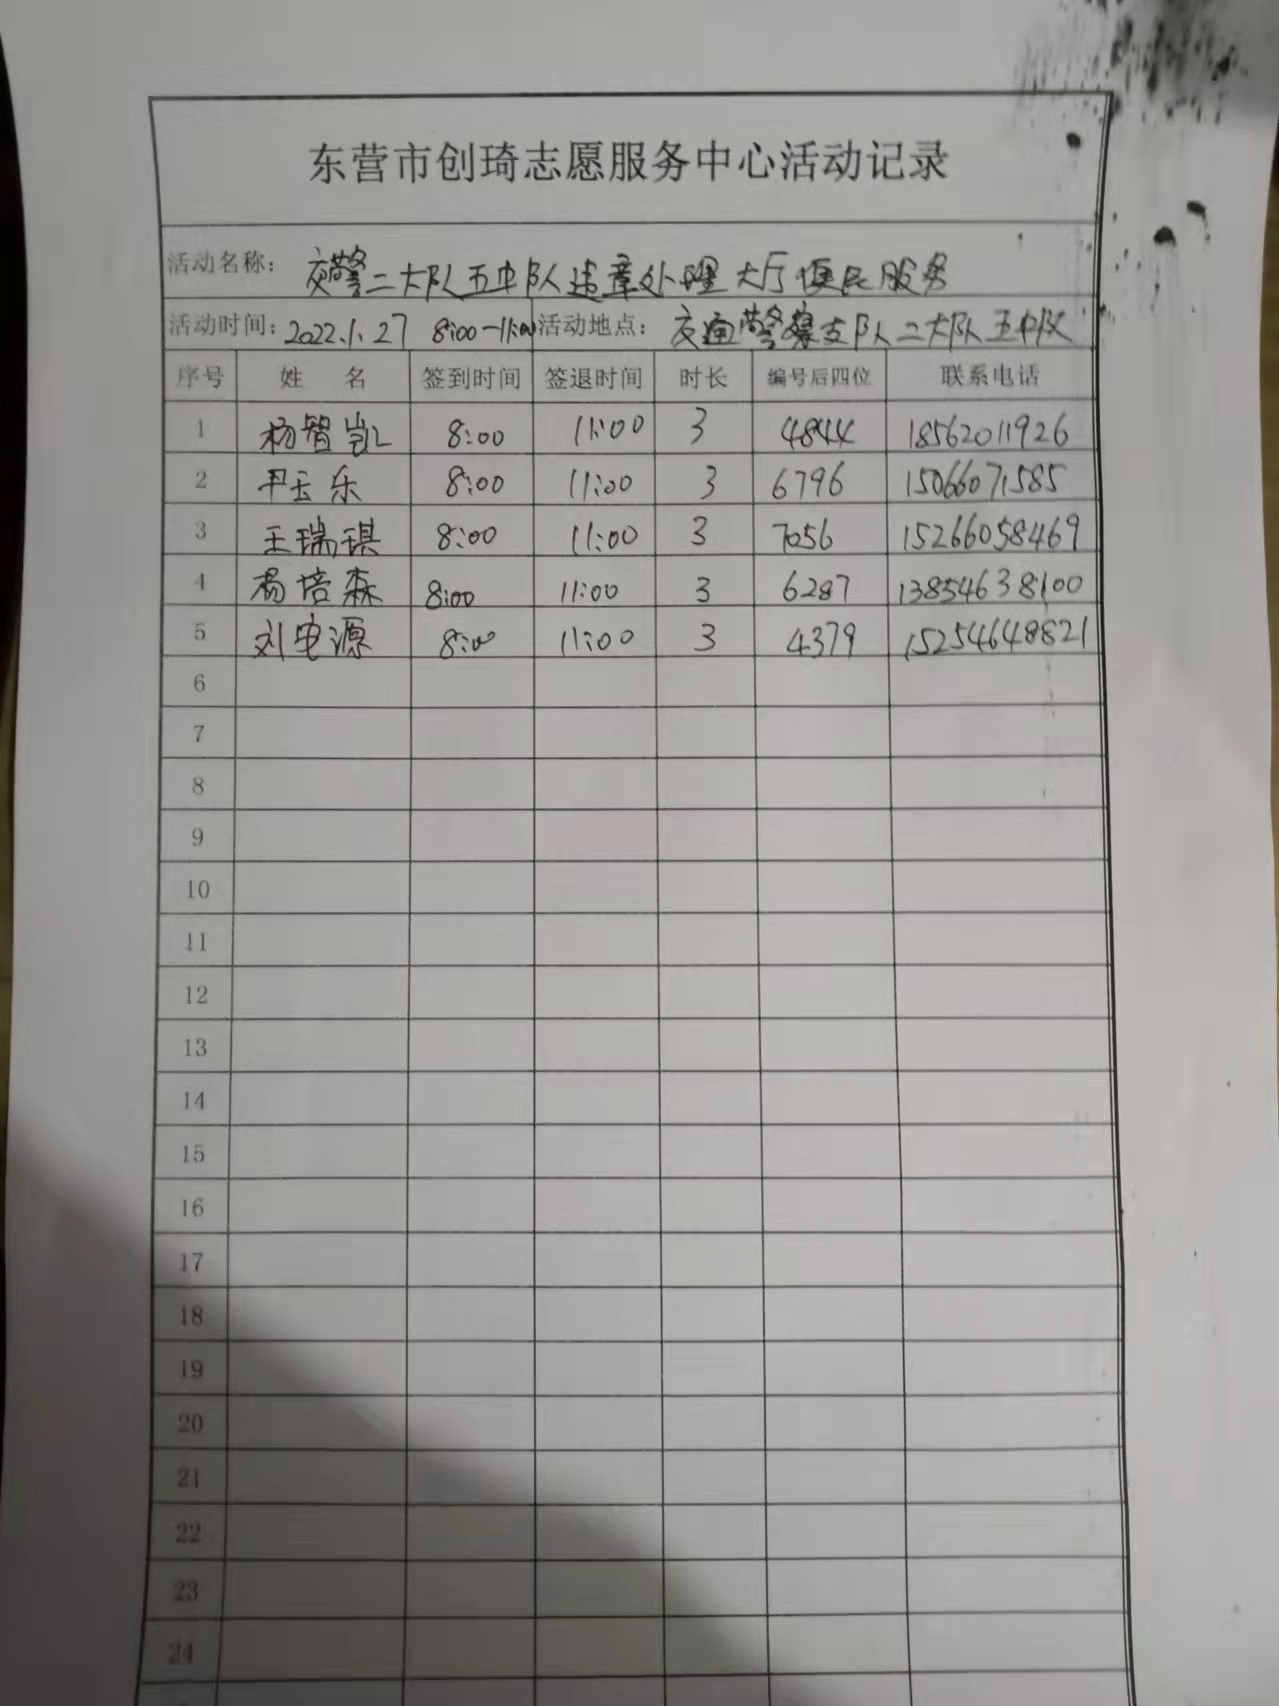 东营市创琦志愿服务中心活动记录
活动名称: 交警二大队五中队违章处理大厅便民服务
活动时间: 2022.1.27 8:00-11:00 活动地点: 交通警察支队二大队五中队
序号 姓 名 签到时间 签退时间 时长 编号后四位 联系电话
1 杨智凯 8:00 11:00 3 4844 18562011926
2 尹玉乐 8:00 11:00 3 6796 15066071585
3 王瑞琪 8:00 11:00 3 7056 15266058469
4 杨培森 8:00 11:00 3 6287 13854638100
5 刘电源 8:00 11:00 3 4379 15254648821
6
7
8
9
10
11
12
13
14
15
16
17
18
19
20
21
22
23
24